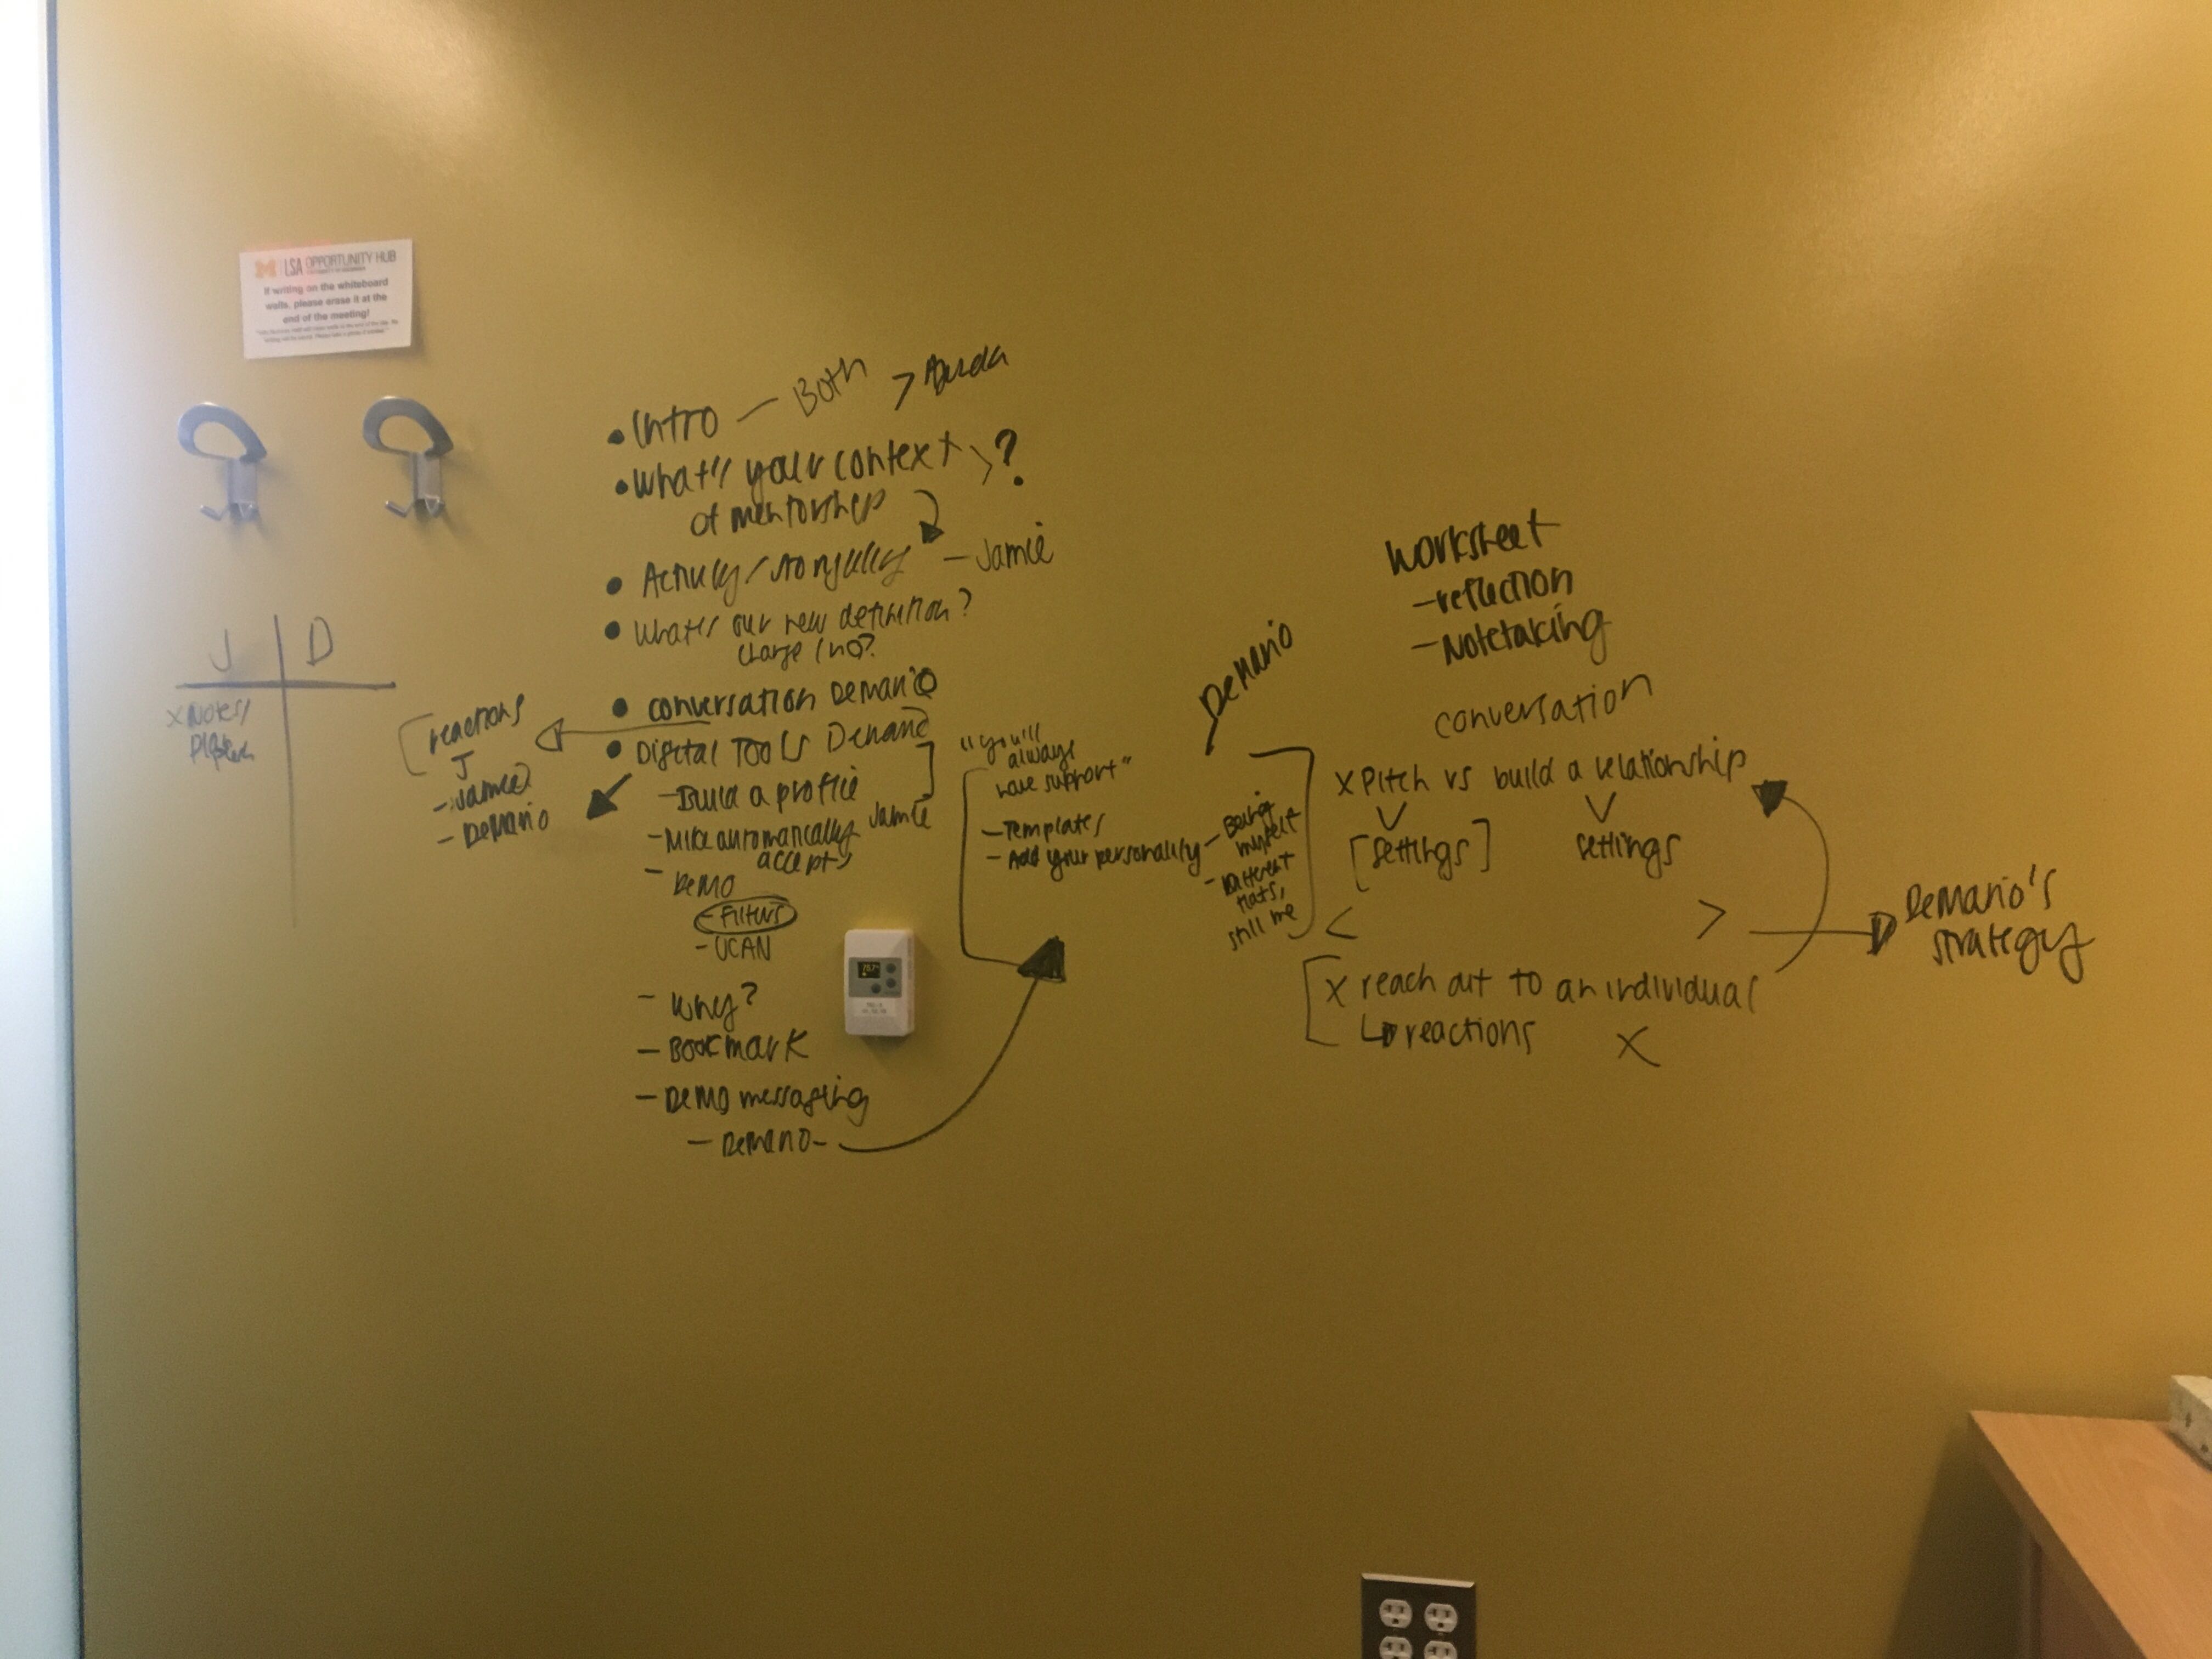 LSA OPPORTUNITY HUB
If writing on the whiteboard
walls, please erase it at the
end of the meeting!
• Intro — Both > Agenda
• What's your context > ?
of mentorship
• Activity/storytelling — Jamie
• What's our new definition?
change / no?
• conversation Demario
• Digital Tools Demario
- Build a profile
- Mike automatically Jamie
accepts
- Demo
- Filters
- UCAN
- Why?
- Bookmark
- Demo messaging
- Demario -
J | D
x Notes/
[reactions
J
- Jamie
- Demario
"you'll
always
have support"
- Templates
- Add your personality
- Being
myself
- Different
hats,
still me
Demario
Worksheet
- reflection
- Notetaking
conversation
x Pitch vs build a relationship
[settings] settings
< >
Demario's
strategy
x reach out to an individual
reactions x